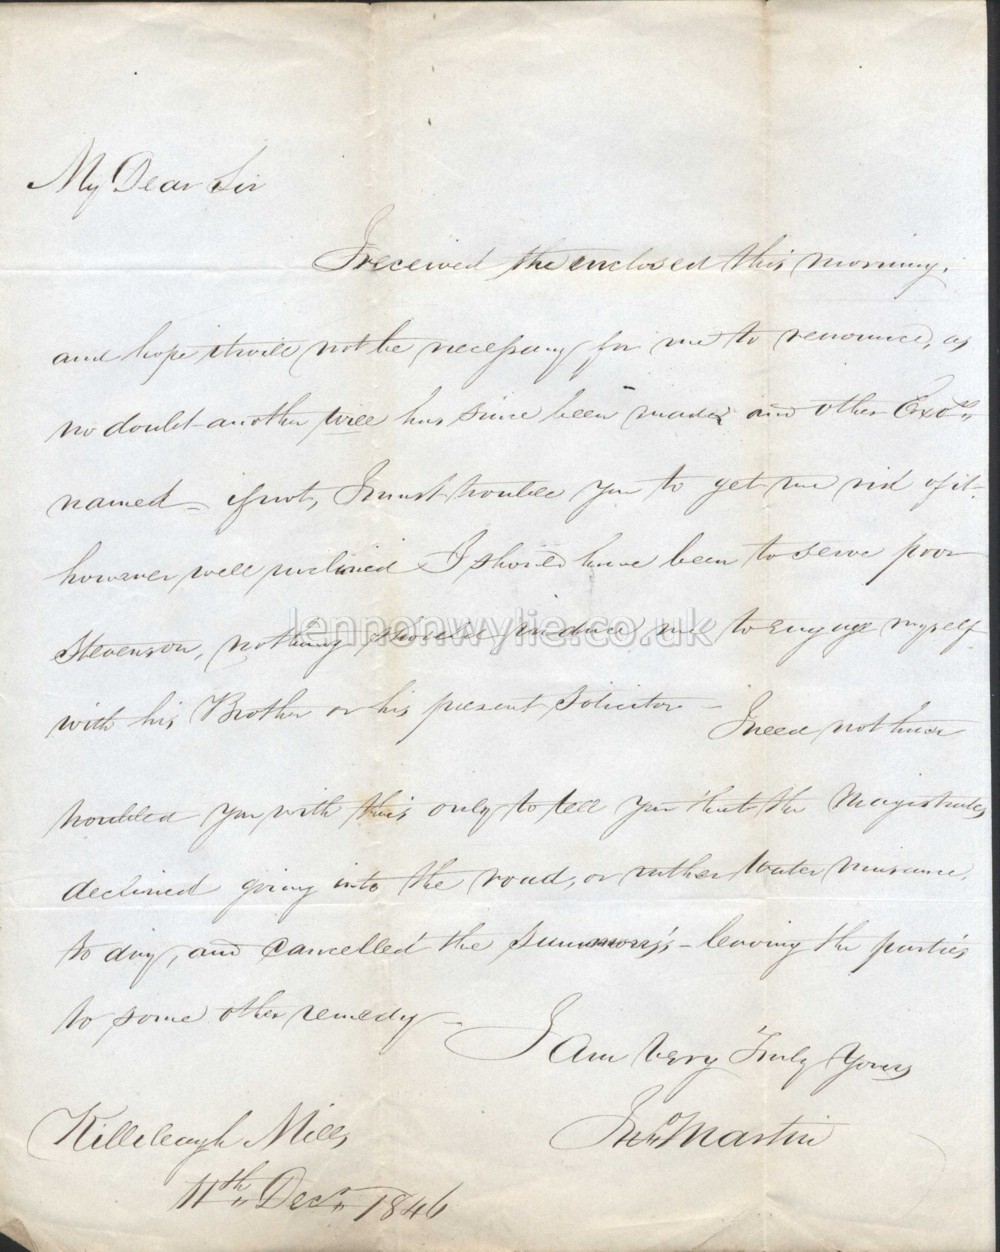 My Dear Sir
I received the enclosed this morning,
and hope it will not be necessary for me to renounce, as
no doubt another will has since been made and other Exors
named – if not, I must trouble you to get me rid of it.
however well inclined I should have been to serve poor
Stevenson, nothing should induce me to engage myself
lennonwylie.co.uk
with his Brother or his present Solicitor – I need not have
troubled you with this only to tell you that the Magistrates
declined going into the road, or rather Water nuisance,
to day, and cancelled the Summons's – leaving the parties
to some other remedy –
I Am Very Truly Yours
Jno Martin
Killileagh Mills
11th Decr 1846